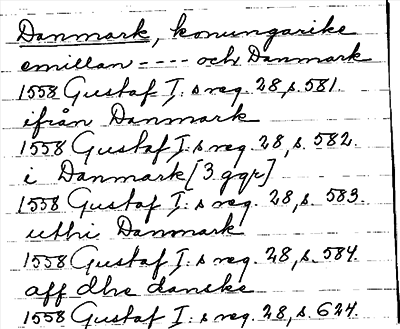 Danmark, konungarike
emillan ---- och Danmark
1558 Gustaf I:s reg. 28, s. 581.
ifrån Danmark
1558 Gustaf I:s reg. 28, s. 582.
i Danmark [3 ggr]
1558 Gustaf I:s reg. 28, s. 583.
uthi Danmark
1558 Gustaf I:s reg. 28, s. 584.
aff dhe danske
1558 Gustaf I:s reg. 28, s. 624.